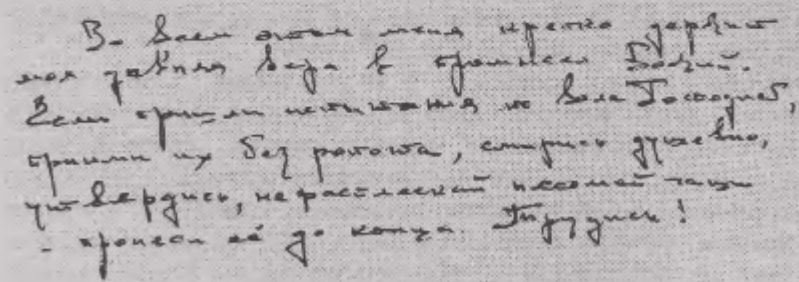 Во всем этом меня крепко держит
моя давняя вера в промысел Божий.
Если пришли испытания по воле Господней,
прими их без ропота, смирись душевно,
утвердись, не расплескай несомой чаши
- пронеси её до конца. Трудись!